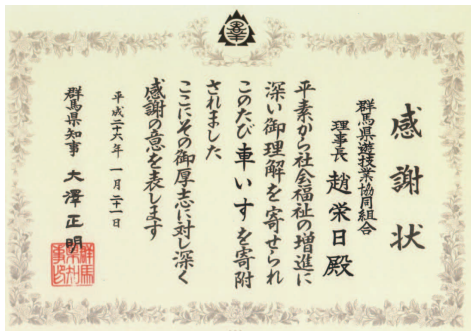 感謝状
群馬県遊技業協同組合
理事長 趙栄日殿
平素から社会福祉の増進に
深い御理解を寄せられ
このたび車いすを寄附
されました
ここにその御厚志に対し深く
感謝の意を表します
平成二十六年一月二十一日
群馬県知事 大澤正明